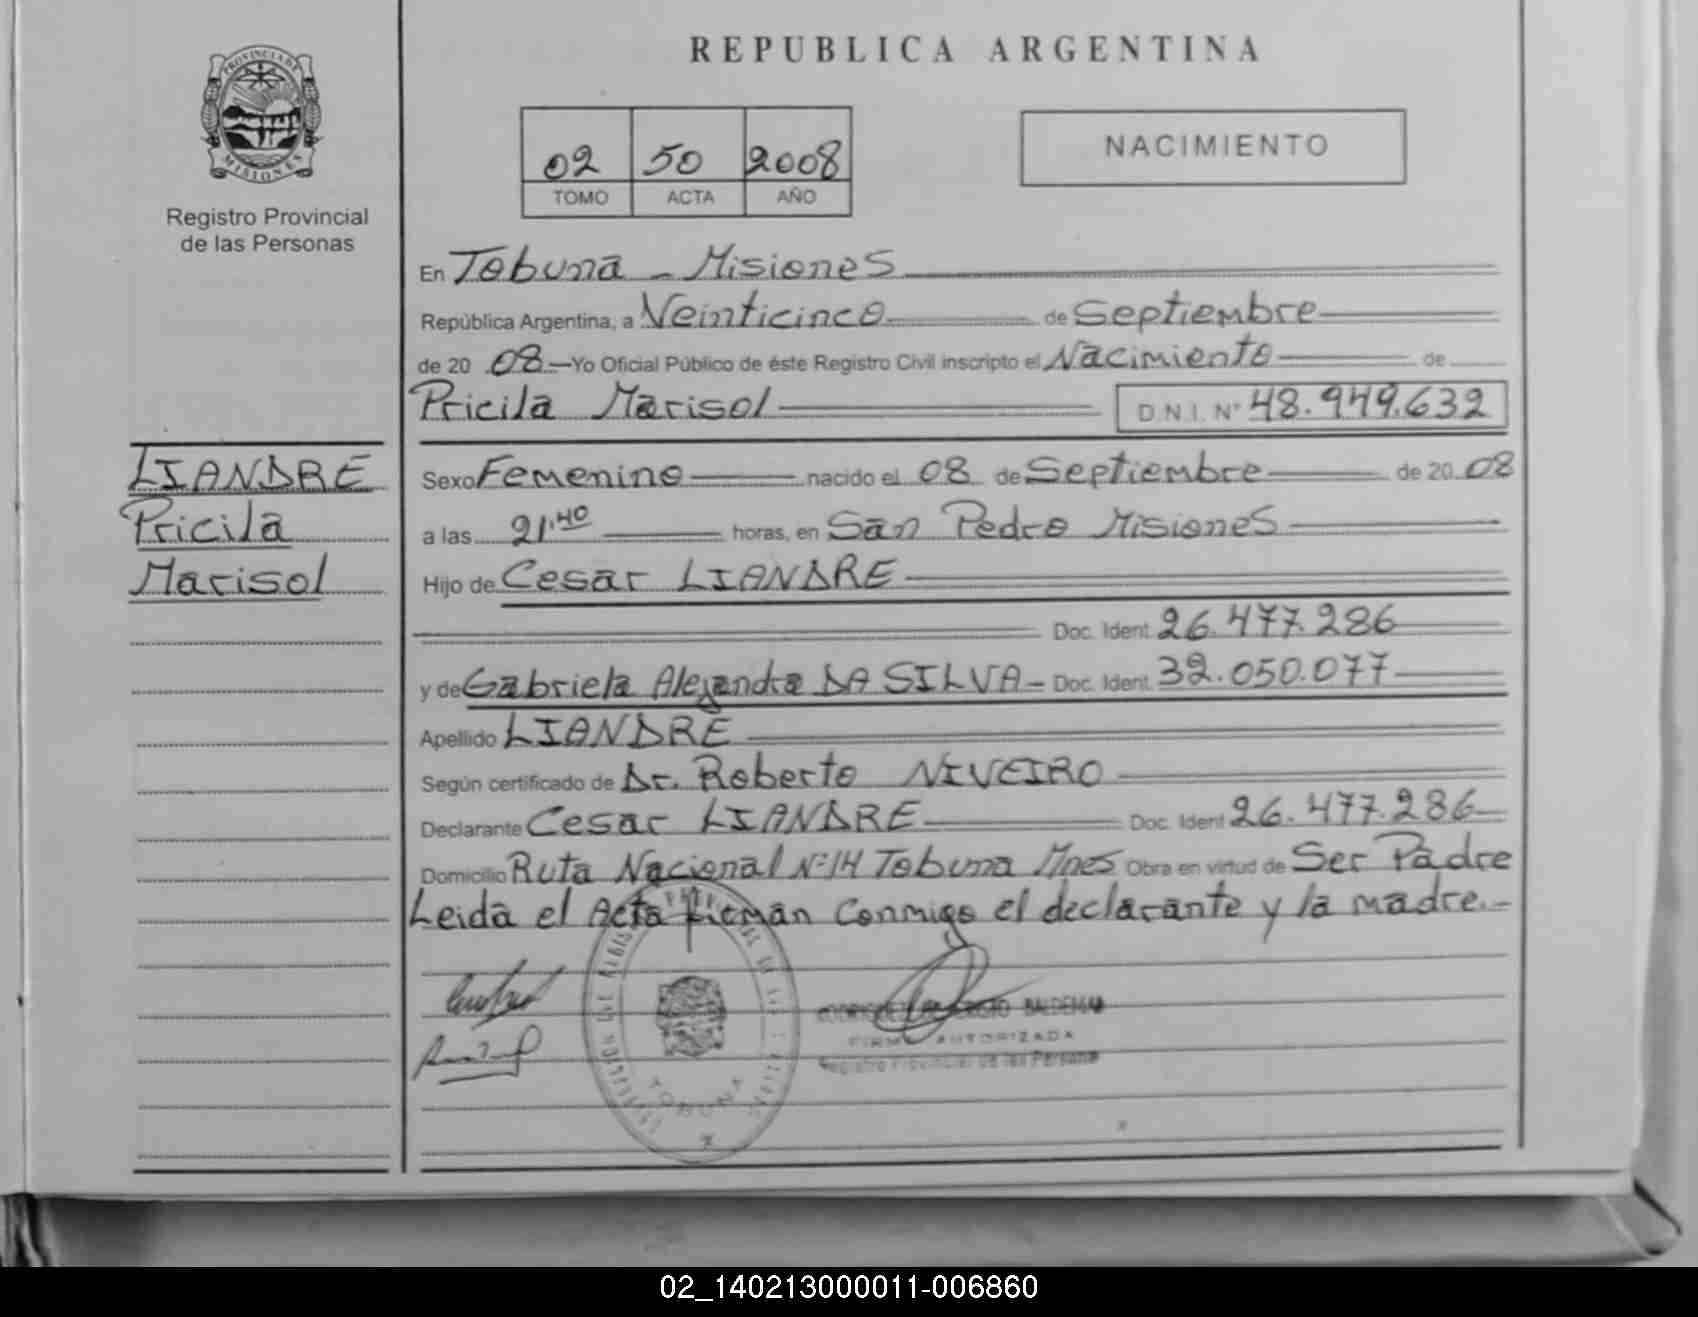 PROVINCIA DE
MISIONES
Registro Provincial
de las Personas
LIANDRE
Pricila
Marisol
REPUBLICA ARGENTINA
02 50 2008
TOMO ACTA AÑO
NACIMIENTO
En Tobuna - Misiones
República Argentina, a Veinticinco de Septiembre
de 20 08 Yo Oficial Público de éste Registro Civil inscripto el Nacimiento de
Pricila Marisol D.N.I. N° 48.949.632
Sexo Femenino nacido el 08 de Septiembre de 20 08
a las 21:40 horas, en San Pedro Misiones
Hijo de Cesar LIANDRE
Doc. Ident. 26.477.286
y de Gabriela Alejandra DA SILVA - Doc. Ident. 32.050.077
Apellido LIANDRE
Según certificado de Dr. Roberto NIVEIRO
Declarante Cesar LIANDRE Doc. Ident. 26.477.286
Domicilio Ruta Nacional N°14 Tobuna Mnes Obra en virtud de Ser Padre
Leida el Acta firman Conmigo el declarante y la madre.-
BALDEMAR
FIRMA AUTORIZADA
Registro Provincial de las Persona
TOBUNA
02_140213000011-006860